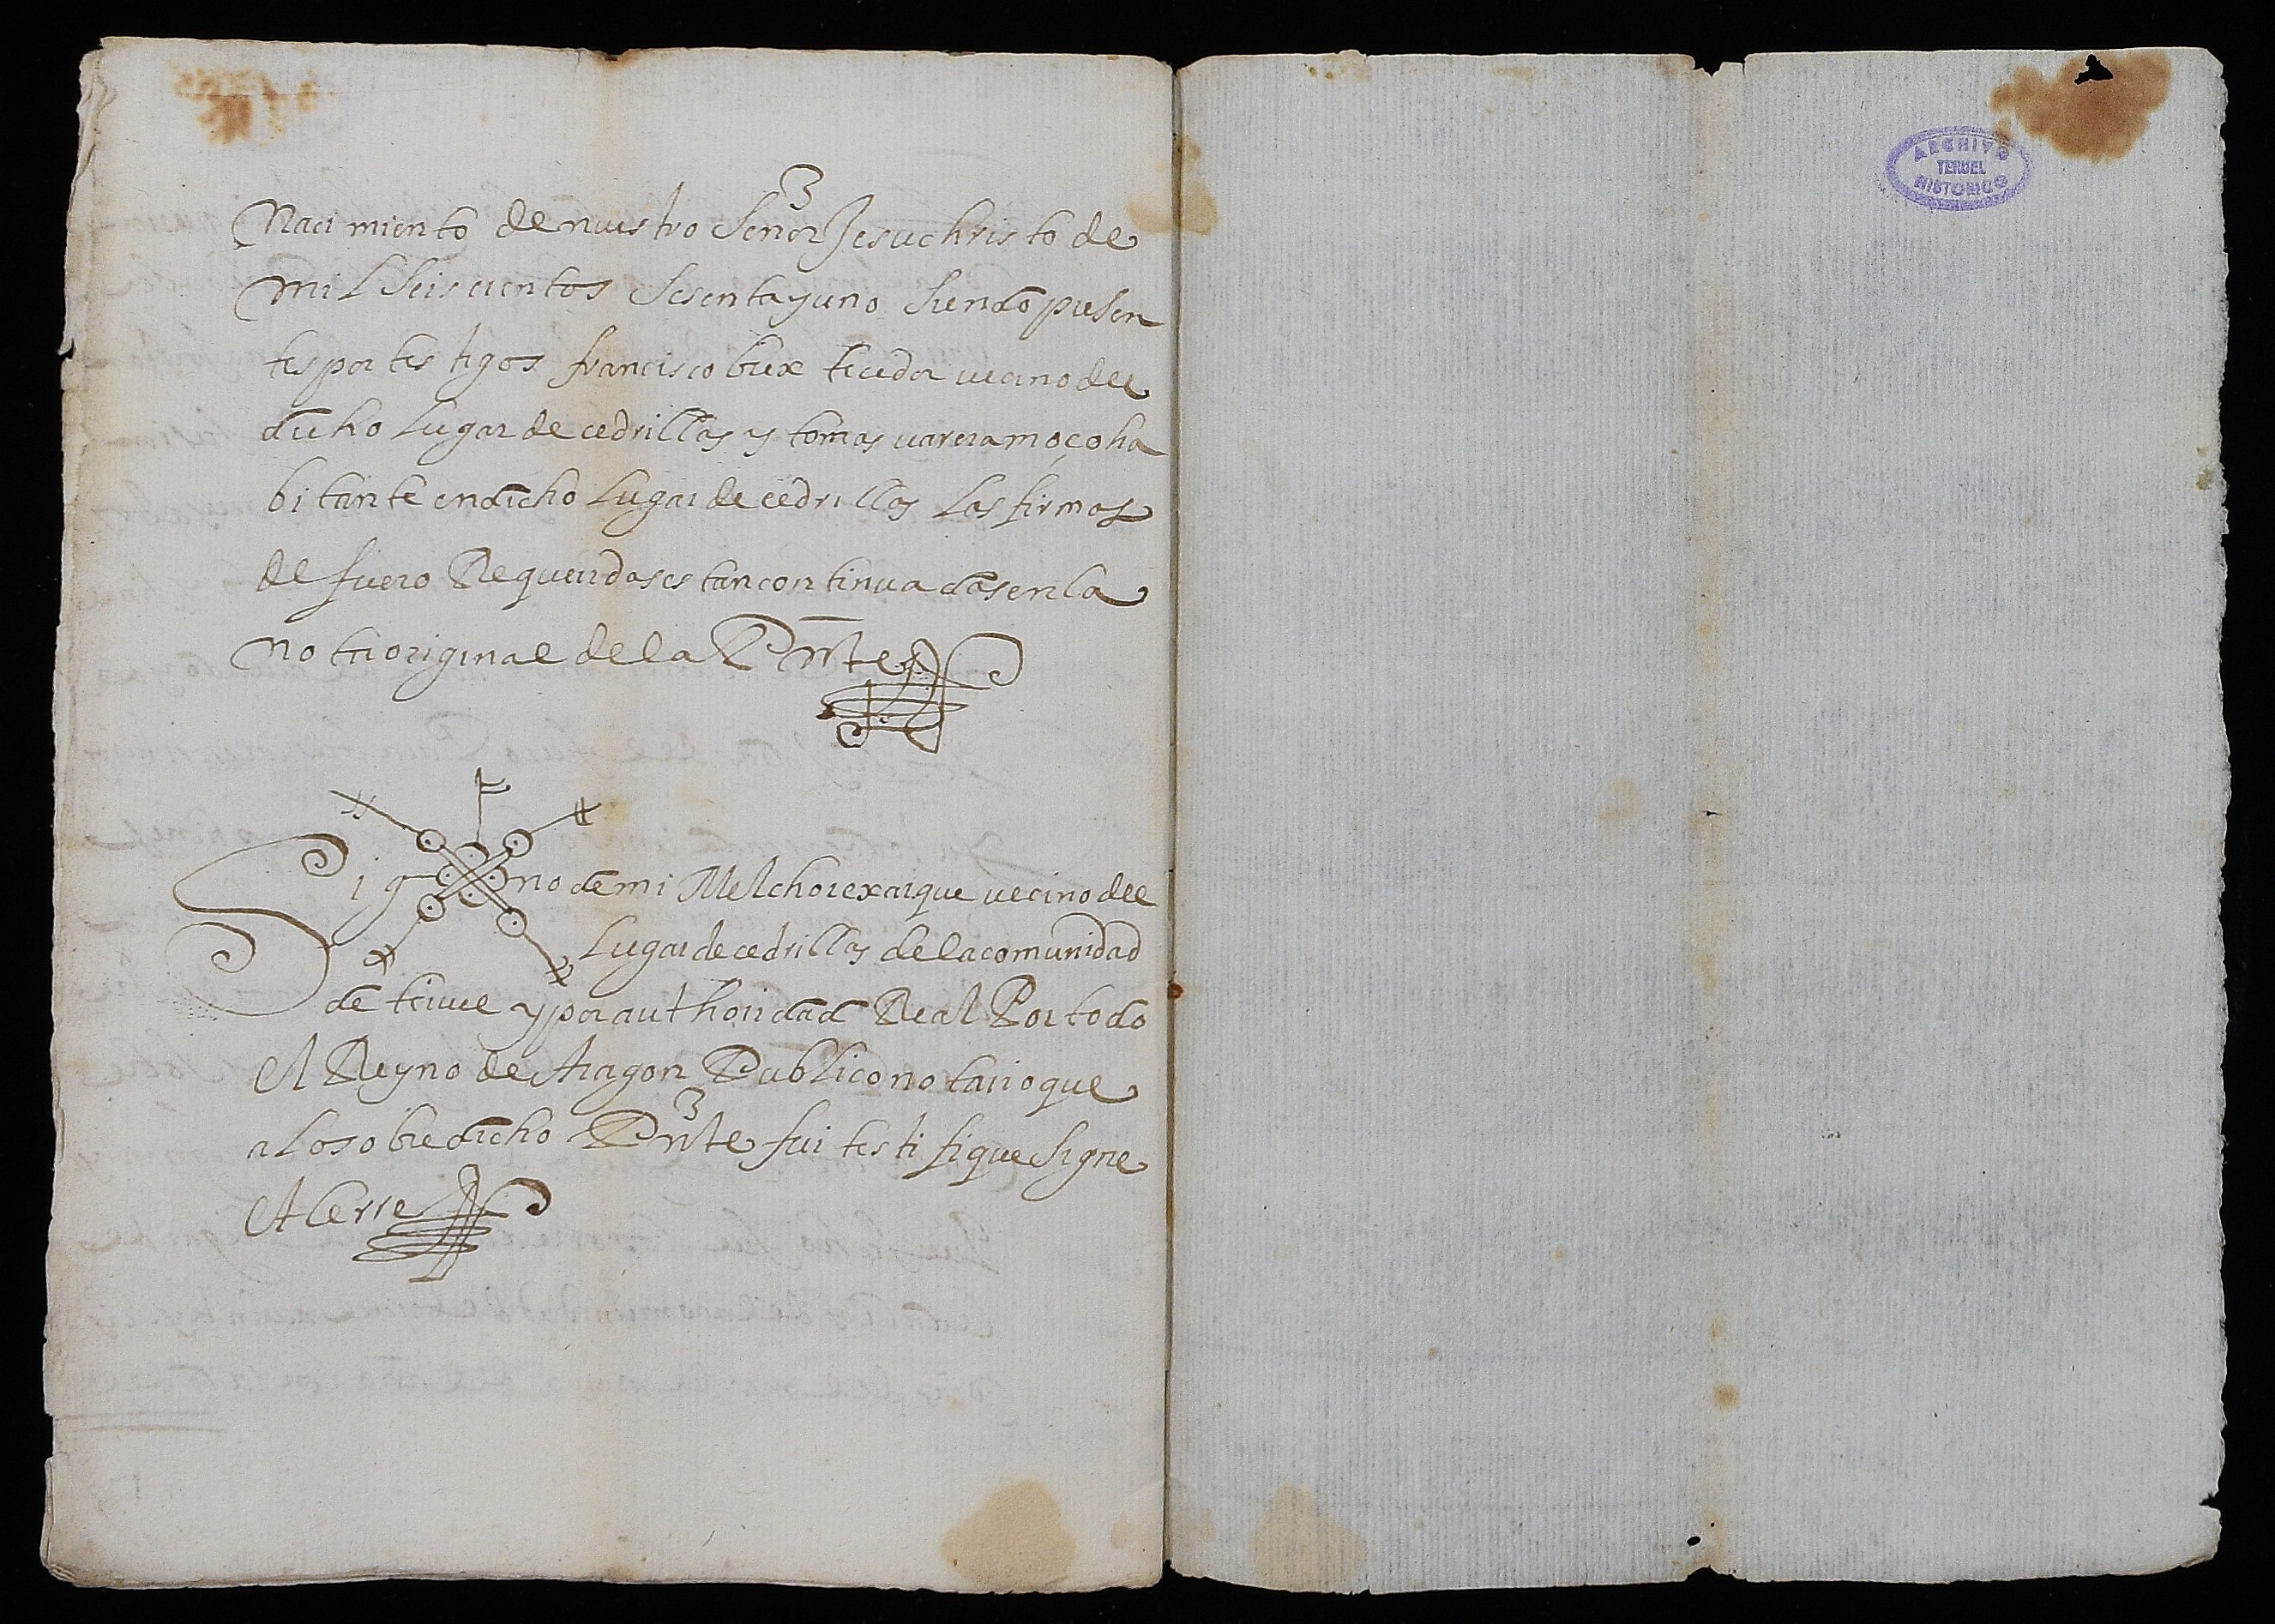 Nacimiento de nuestro Señor Jesuchristo de
mil seiscientos sesenta y uno siendo presen
tes por testigos francisco briex tecedor vecino del
dicho lugar de cedrillas y tomas varera moço ha
bitante en dicho lugar de cedrillas las firmas
de fuero Requeridas estan continuadas en la
nota original de la Pnte
Sig no de mi Melchor exarque vecino del
lugar de cedrillas de la comunidad
de teruel y por authoridad Real Por todo
el Reyno de Aragon Publico notario que
a lo sobredicho Pnte fui testifique signe
et cerre
ARCHIVO
TERUEL
HISTORICO